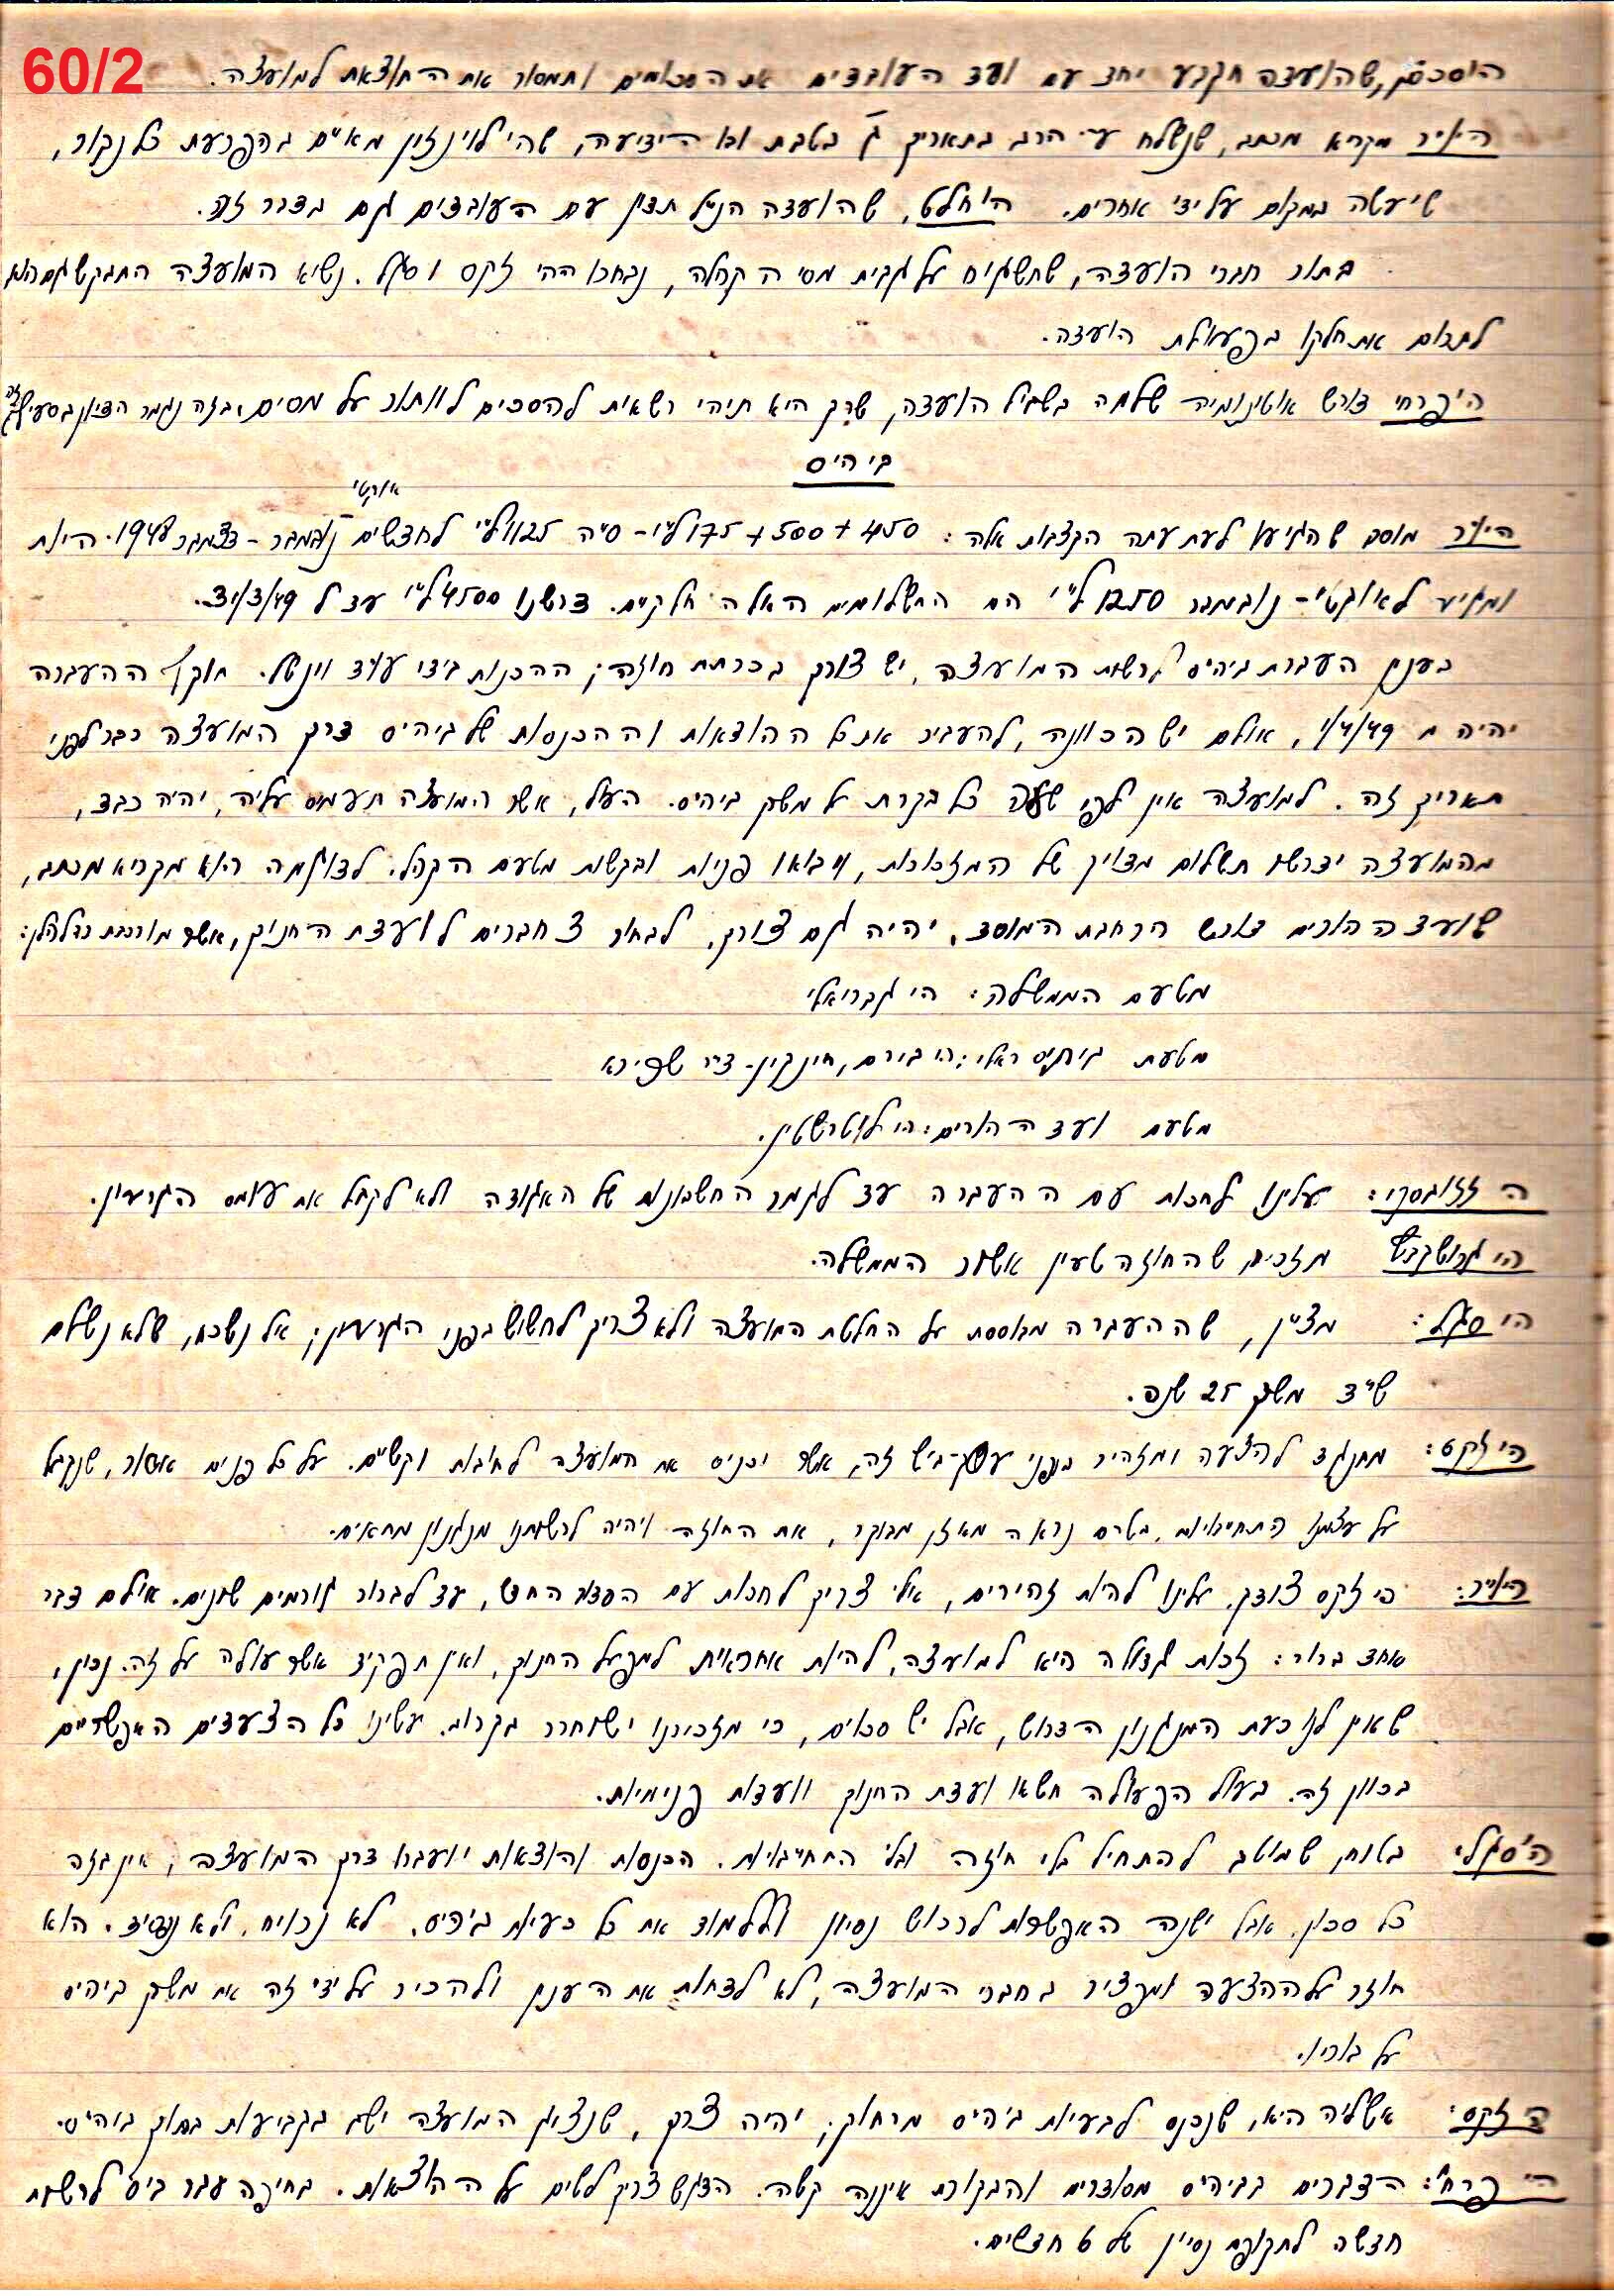 60/2
הוסכם, שהועדה תקבע יחד עם ועד העובדים את הסכומים ותמסור את התוצאות למועצה.
היו״ר מקריא מכתב, שנשלח ע״י הרב בתאריך ג׳ בטבת ובו הידיעה, שהי׳ לוינזון מאיים בהפרעת כל נקור,
שיעשה במקום על ידי אחרים. הוחלט, שהועדה הנ״ל תדון עם העובדים גם בדבר זה.
בתור חברי הועדה, שתשגיח על גבית מסי הקהלה, נבחרו הה׳ זקס וסגל. נשיא המועצה התבקש גם הוא
לתרום את חלקו בפעולת הועדה.
הי׳ פרחי דורש אוטונומיה שלמה בשביל הועדה, שרק היא תיהי רשאית להסכים לוותור על מסים. ובזה נגמר הדיון בסעיף זה
ביה״ס
היו״ר מוסר שהגיעו לעת עתה הקצבות אלה: 450 + 500 + 175 ל״י – ס״ה 1125 ל״י לחדשים אוקט׳ נובמבר – דצמבר 1948. היות
ומגיע לאוקט׳ – נובמבר 1250 ל״י הם התשלומים האלה חלקיים. דרשנו 4500 ל״י עד ל 31/3/49.
בענין העברת ביה״ס לרשות המועצה, יש צורך בכריתת חוזה; ההכנות בידי עו״ד וינשל. תוקף ההעברה
יהיה מ 1/4/49, אולם יש הכוונה, להעביר את כל ההוצאות וההכנסות של ביה״ס דרך המועצה כבר לפני
תאריך זה. למועצה אין לפי שעה כל בקרת על משק ביה״ס. העול, אשר המועצה תעמיס עליה, יהיה כבד,
מהמועצה ידרשו תשלום מדויק של המזכורות, ויבואו פניות ובקשות מטעם הקהל. לדוגמה הוא מקריא מכתב,
שועד ההורים דורש הרחבת המוסד. יהיה גם צורך, לבחור 3 חברים לועדת החנוך, אשר מורכבת כדלהלן:
מטעם הממשלה: הי׳ גבריאלי
מטעם ועד ההורים: הי׳ לוטרשטין.
עלינו לחכות עם ההעברה עד לגמר החשבונות של האגודה ולא לקבל את עומס הגרעון.
מזכיר, שהחוזה טעון אשור הממשלה.
הי׳ סגל: מציין, שההעברה מבוססת על החלטת המועצה ולא צריך לחשוש בפני הגרעון; אל נשכח, שלא נשלם
ש״ד משך 25 שנה.
הי׳ זקס: מתנגד להצעה ומזהיר בפני עסק־ביש זה, אשר יכניס את המועצה לחובות וקשיים. על כל פנים אסור, שנקבל
על עצמנו התחייבות, בטרם נראה מאזן מבוקר, את החוזה ויהיה לרשותנו מנגנון מתאים.
היו״ר: הי׳ זקס צודק. עלינו להיות זהירים, אולי צריך לחכות עם הסדר החדש, עד לברור גורמים שונים. אולם דבר
אחד ברור: זכות גדולה היא למועצה, להיות אחראית למפעל החנוך, ואין תפקיד אשר עולה על זה. נכון,
שאין לנו כעת המנגנון הדרוש, אבל יש סכוים, כי מזכירנו ישוחרר בקרוב. עשינו כל הצעדים האפשריים
בכוון זה. בעול הפעולה תשא ועדת החנוך וועדות פנימיות.
ה׳ סגל: בטוח, שמוטב להתחיל בלי חוזה ובלי התחייבויות. הכנסות והוצאות יועברו דרך המועצה; אין בזה
כל סכון, אבל ישנה האפשרות לרכוש נסיון וללמוד את כל בעיות ביה״ס. לא נרויח, ולא נפסיד. הוא
חוזר על ההצעה ומפציר בחברי המועצה, לא לדחות את הענין ולהכיר על ידי זה את משק ביה״ס
על בוריו.
ה׳ זקס: אשליה היא, שנכנס לבעיות ביה״ס מרחוק; יהיה צרך, שנציג המועצה ישב בקביעות בתוך ביה״ס.
הי׳ פרחי: הדברים בביה״ס מסודרים והבקורת איננה קשה. הדגש צריך לשים על ההוצאות. בחיפה עבר ביס׳ לרשות
חדשה לתקופת נסיון של 6 חדשים.